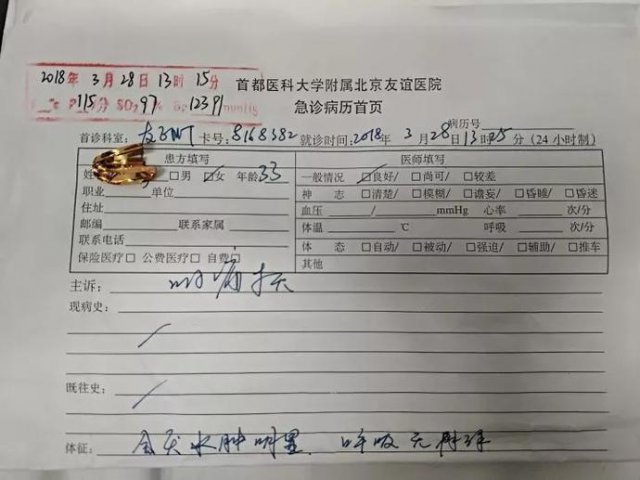 2018年 3月28日13时15分
P115分 SO₂97 Bp 123/91mmHg
首都医科大学附属北京友谊医院
急诊病历首页
病历号
首诊科室: 卡号: 8168382 就诊时间: 2018年 3月28日13时25分 (24小时制)
患方填写 医师填写
姓 □男 ☑女 年龄33 一般情况 ☑良好/ □尚可/ □较差
职业 单位 神 志 □清楚/ □模糊/ □谵妄/ □昏睡/ □昏迷
住址 血压 / mmHg 心率 次/分
邮编 联系家属 体温 ℃ 呼吸 次/分
联系电话 体 态 □自动/ □被动/ □强迫/ □辅助/ □推车
保险医疗□ 公费医疗□ 自费□ 其他
主诉:
现病史: /
既往史: /
体征: 水肿明显、呼吸无